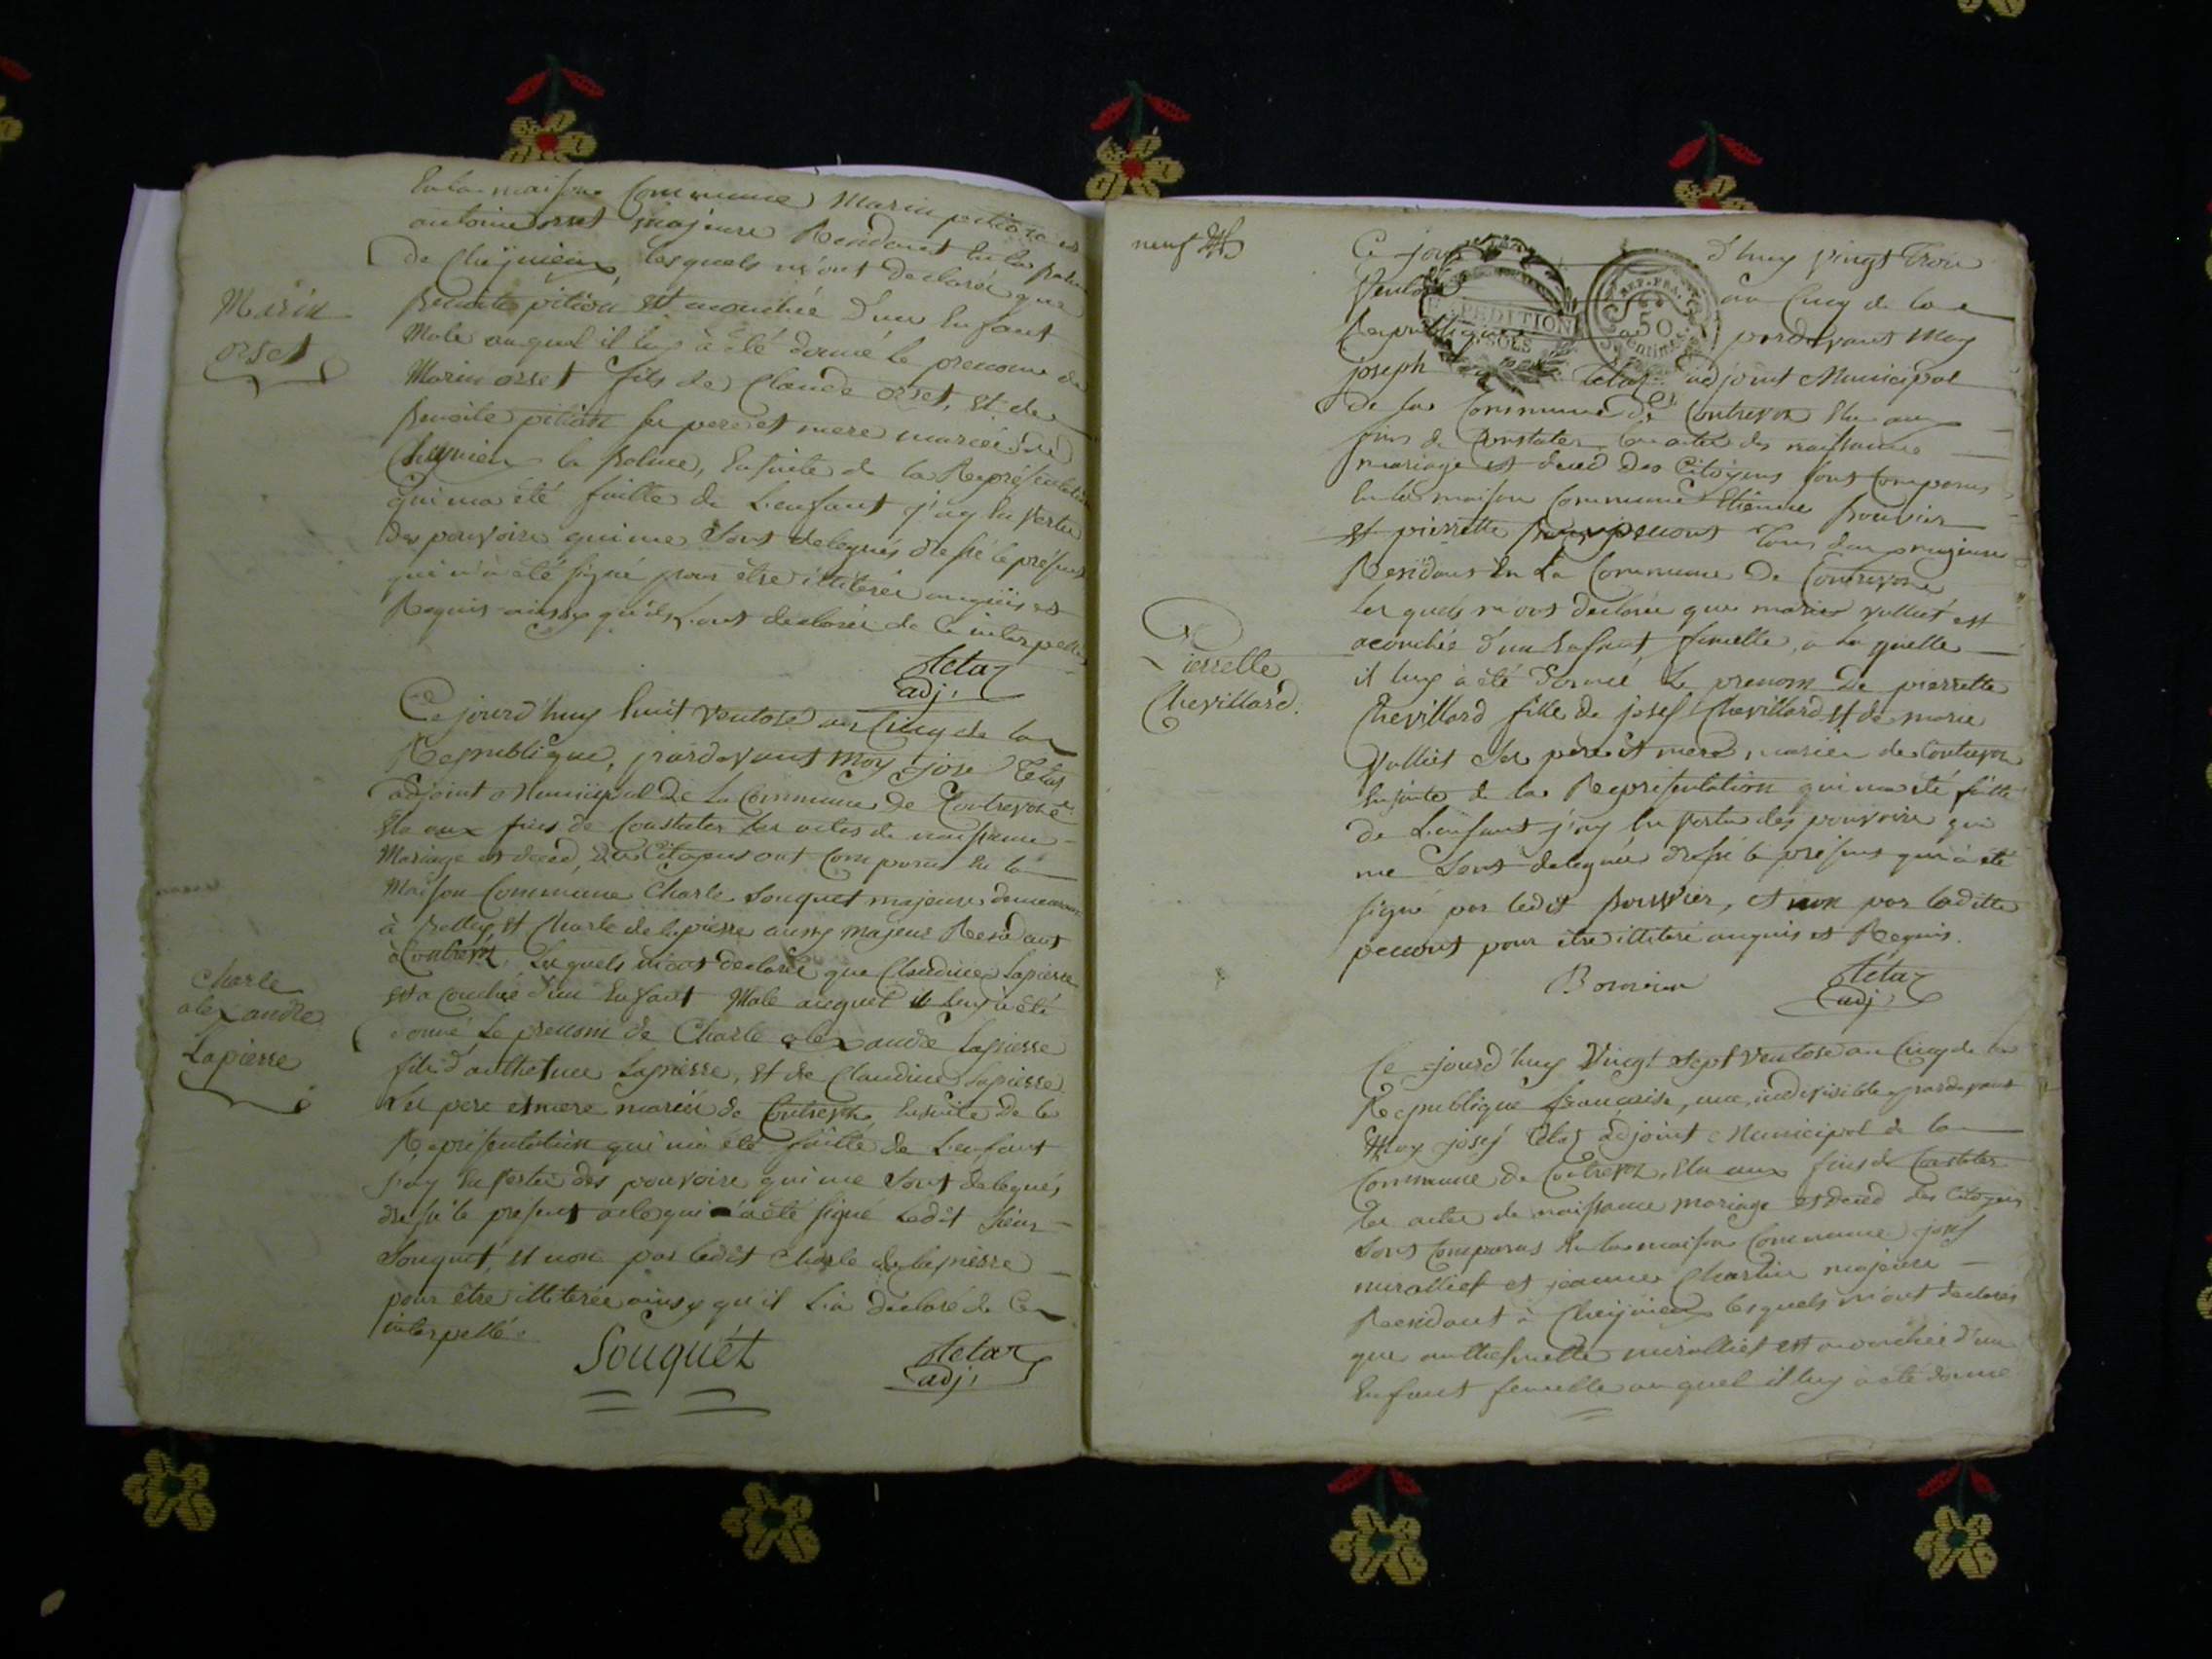 En la maison Commune Marin pition et
antoine orset majeure Residant En la
de Cheÿnieu, lesquels m'ont declaré que
benoite pition est acouchée d'un Enfant
Male auquel il luy à été donné le prenom de
Marin
orset
Marin orset fils de Claude orset, et de
benoite pition ses pere et mere mariés de
Cheÿnieu la balme, Ensuite de la Représentation
qui ma été faitte de L'enfant j'ay En vertu
des pouvoirs qui me Sont delegués dressé le présent
qui n'a été signé pour être illiteré
Requis ainsy qu'ils l'ont declarés de ce interpellé
tetaz
adj.
Ce jourd'huy huit ventose an Cinq de la
Republique, pardevant moy jose tetaz
adjoint Municipal de la Commune de Contrevoz
Elu aux fins de Constater les actes de naissance
Mariage et deced, des Citoyens ont Comparus En la
Maison Commune Charle Souquet majeure demeurant
à belley, et Charle de lapierre aussy majeur Residant
à Contrevoz, Lesquels m'ont declaré que Claudine Lapierre
est acouchée d'un Enfant Male auquel il luy à été
Charle
alexandre
Lapierre
donné Le prenom de Charle alexandre Lapierre
fils d'anthelme Lapierre, et de Claudine Lapierre
Ses pere et mere mariés de Contrevoz, Ensuite de la
Représentation qui m'a été faitte de L'enfant
j'ay En vertu des pouvoirs qui me Sont delegués
dressé le present acte qui à été signé Ledit Sieur
Souquet, et non par ledit Charle de lapierre
pour être illiterée ainsy qu'il L'a declaré de Ce
interpellé.
Souquét
tetaz
adj.
neuf
Ce jour d'huy vingt trois
Ventose an Cinq de la
EXPEDITION
REP. FRA.
50
Centimes
SOLS
Republique pardevant Moy
joseph tetaz adjoint Municipal
de la Commune de Contrevoz Elu aux
fins de Constater les actes des naissance
mariage et deced des Citoyens Sont Comparus
En la maison Commune Etienne bouvier
et pierrette penont tous deux majeure
Residans En La Commune de Contrevoz
Lesquels m'ont declarés que marie vulliet est
acouchée d'un Enfant femelle, a la quelle
Pierrette
Chevillard.
il luy à été donné Le prenom De pierrette
Chevillard fille de josef Chevillard et de marie
Vulliet Ses pere et mere mariés de Contrevoz
Ensuite de la Représentation qui m'a été faitte
de L'enfant j'ay En vertu des pouvoirs qui
me Sont delegués dressé le présent qui à été
signé par ledit bouvier, et non par laditte
penont pour être illiteré anquis et Requis.
Bouvier
tetaz
adj.
Ce jourd'huy Vingt Sept ventose an Cinq de la
Republique francaise, une, indivisible pardevant
Moy josef tetaz adjoint Municipal de la
Commune de Contrevoz, Elu aux fins de Constater
les actes de naissance mariage et deced des Citoyens
Sont Comparus En la maison Commune josef
miralliet et jeanne Charlin majeure
Residant à Cheÿnieu lesquels m'ont declarés
que anthelmette miralliet est acouchée d'un
Enfant femelle auquel il luy à été donné